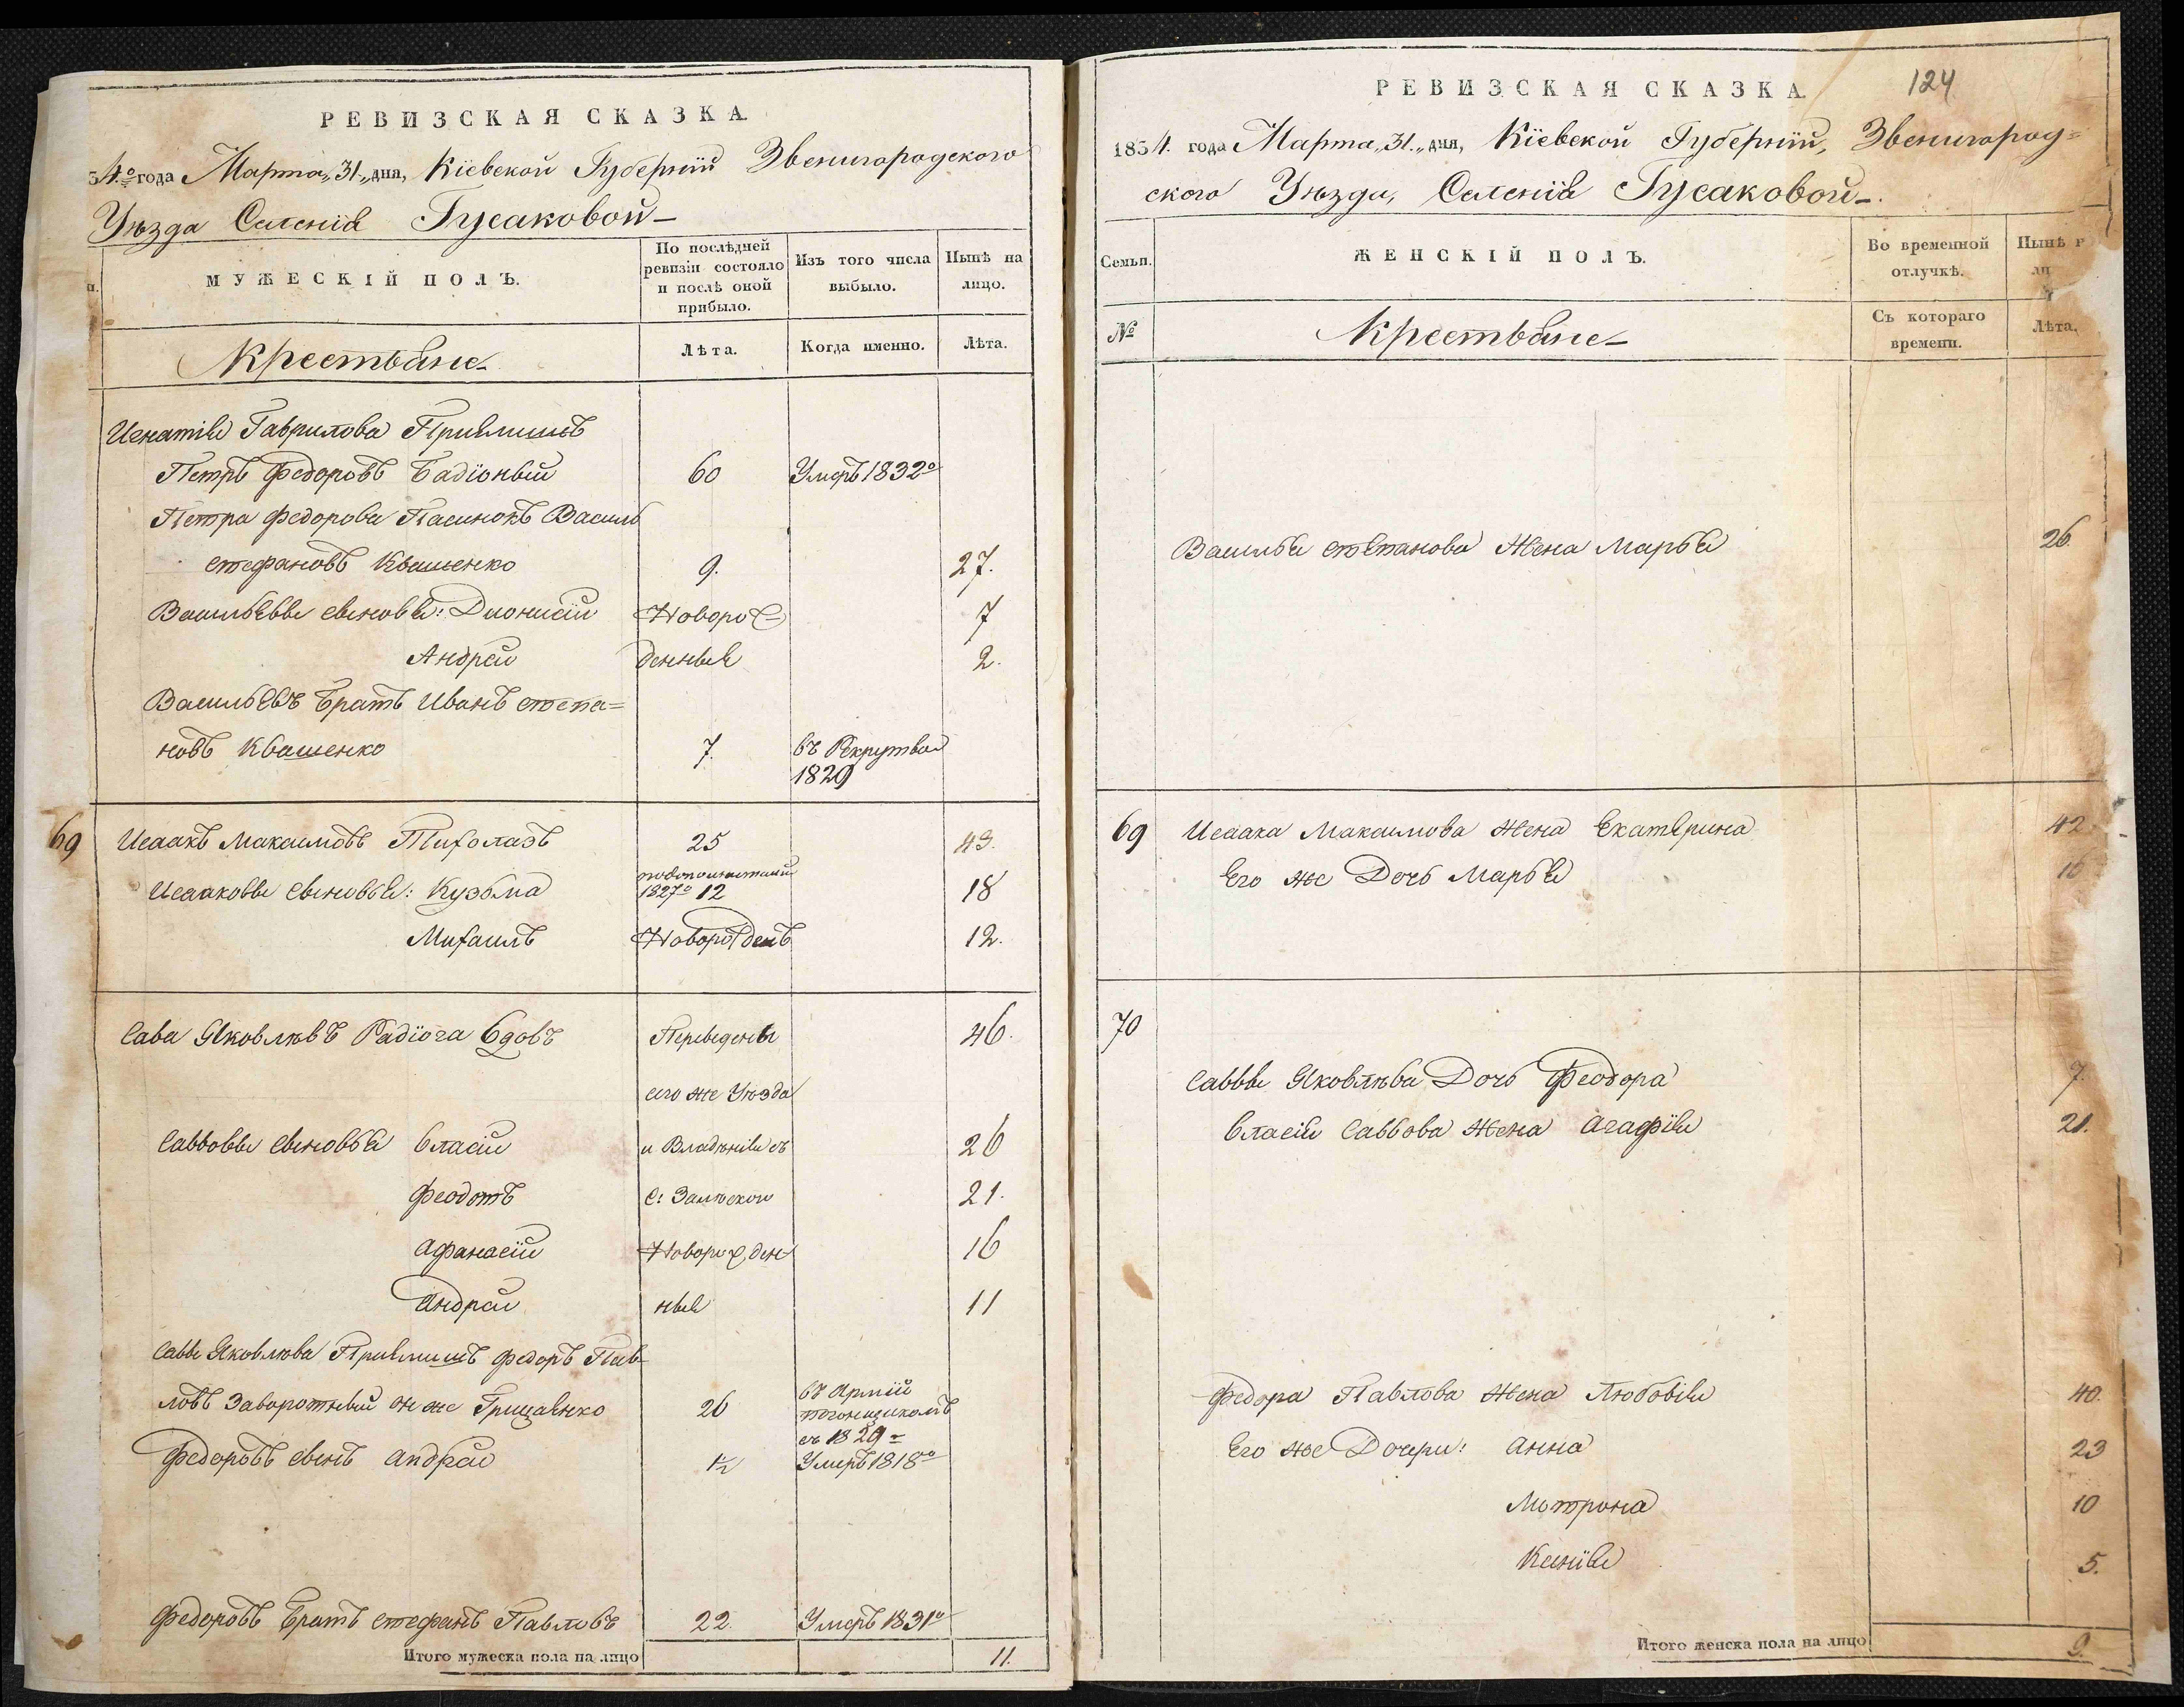 РЕВИЗСКАЯ СКАЗКА.
54.º года Марта „31„ дня, Кіевской Губерніи Звенигородского
Уѣзда Селенія Гусаковой
МУЖЕСКІЙ ПОЛЪ.
По послѣдней ревизіи состояло и послѣ оной прибыло.
Изъ того числа выбыло.
Нынѣ на лицо.
Крестьяне
Лѣта.
Когда именно.
Лѣта.
Игнатія Гаврилова Приямишъ
Петръ Федоровъ Бадіоный 60 Умеръ 1832º
Петра Федорова Пасинокъ Василь
Стефановъ Квашенко 9. 27.
Васильевы сыновья: Дионисій Новорож= 7
Андрей денные 2.
Васильевъ Братъ Иванъ Степа=
новъ Квашенко 7. въ Рекрутвом
1829
69 Исаакъ Максимовъ Тихолазъ 25 43.
Исааковы сыновья: Кузьма 1827º 12 18
Михаилъ Новорожденъ 12.
Сава Яковлѣвъ Радіога вдовъ Переведены 46.
сего же Уѣзда
Саввовы сыновья Власій и Владѣнія съ 26
Феодотъ С: Залѣской 21.
Афанасій Новорожден 16
Андрей ные 11
Саввы Яковлѣва Приямишъ Федоръ Пав-
ловъ Заворотный онже Грицаенко 26 въ Арміи
погонщикомъ
съ 1829
Федоровъ сынъ Андрей ½ Умеръ 1818º
Федоровъ Братъ Стефанъ Павловъ 22. Умеръ 1831º
Итого мужеска пола на лицо 11.
124
РЕВИЗСКАЯ СКАЗКА.
1854. года Марта „31.„ дня, Кіевской Губерніи, Звенигород=
ского Уѣзда, Селенія Гусаковой
Семьи.
ЖЕНСКІЙ ПОЛЪ.
Во временной отлучкѣ.
Нынѣ
№
Крестьяне
Съ котораго времени.
Лѣта.
Василья Степанова Жена Марья 26.
69 Исаака Максимова Жена Екатерина 42
Его же Дочь Марья 16
70
Саввы Яковлѣва Дочь Феодора 7.
Власія Саввова Жена Агафія 21.
Федора Павлова Жена Любовія 40.
Его же Дочери: Анна 23
Мотрона 10
Ксенія 5.
Итого женска пола на лицо 9.